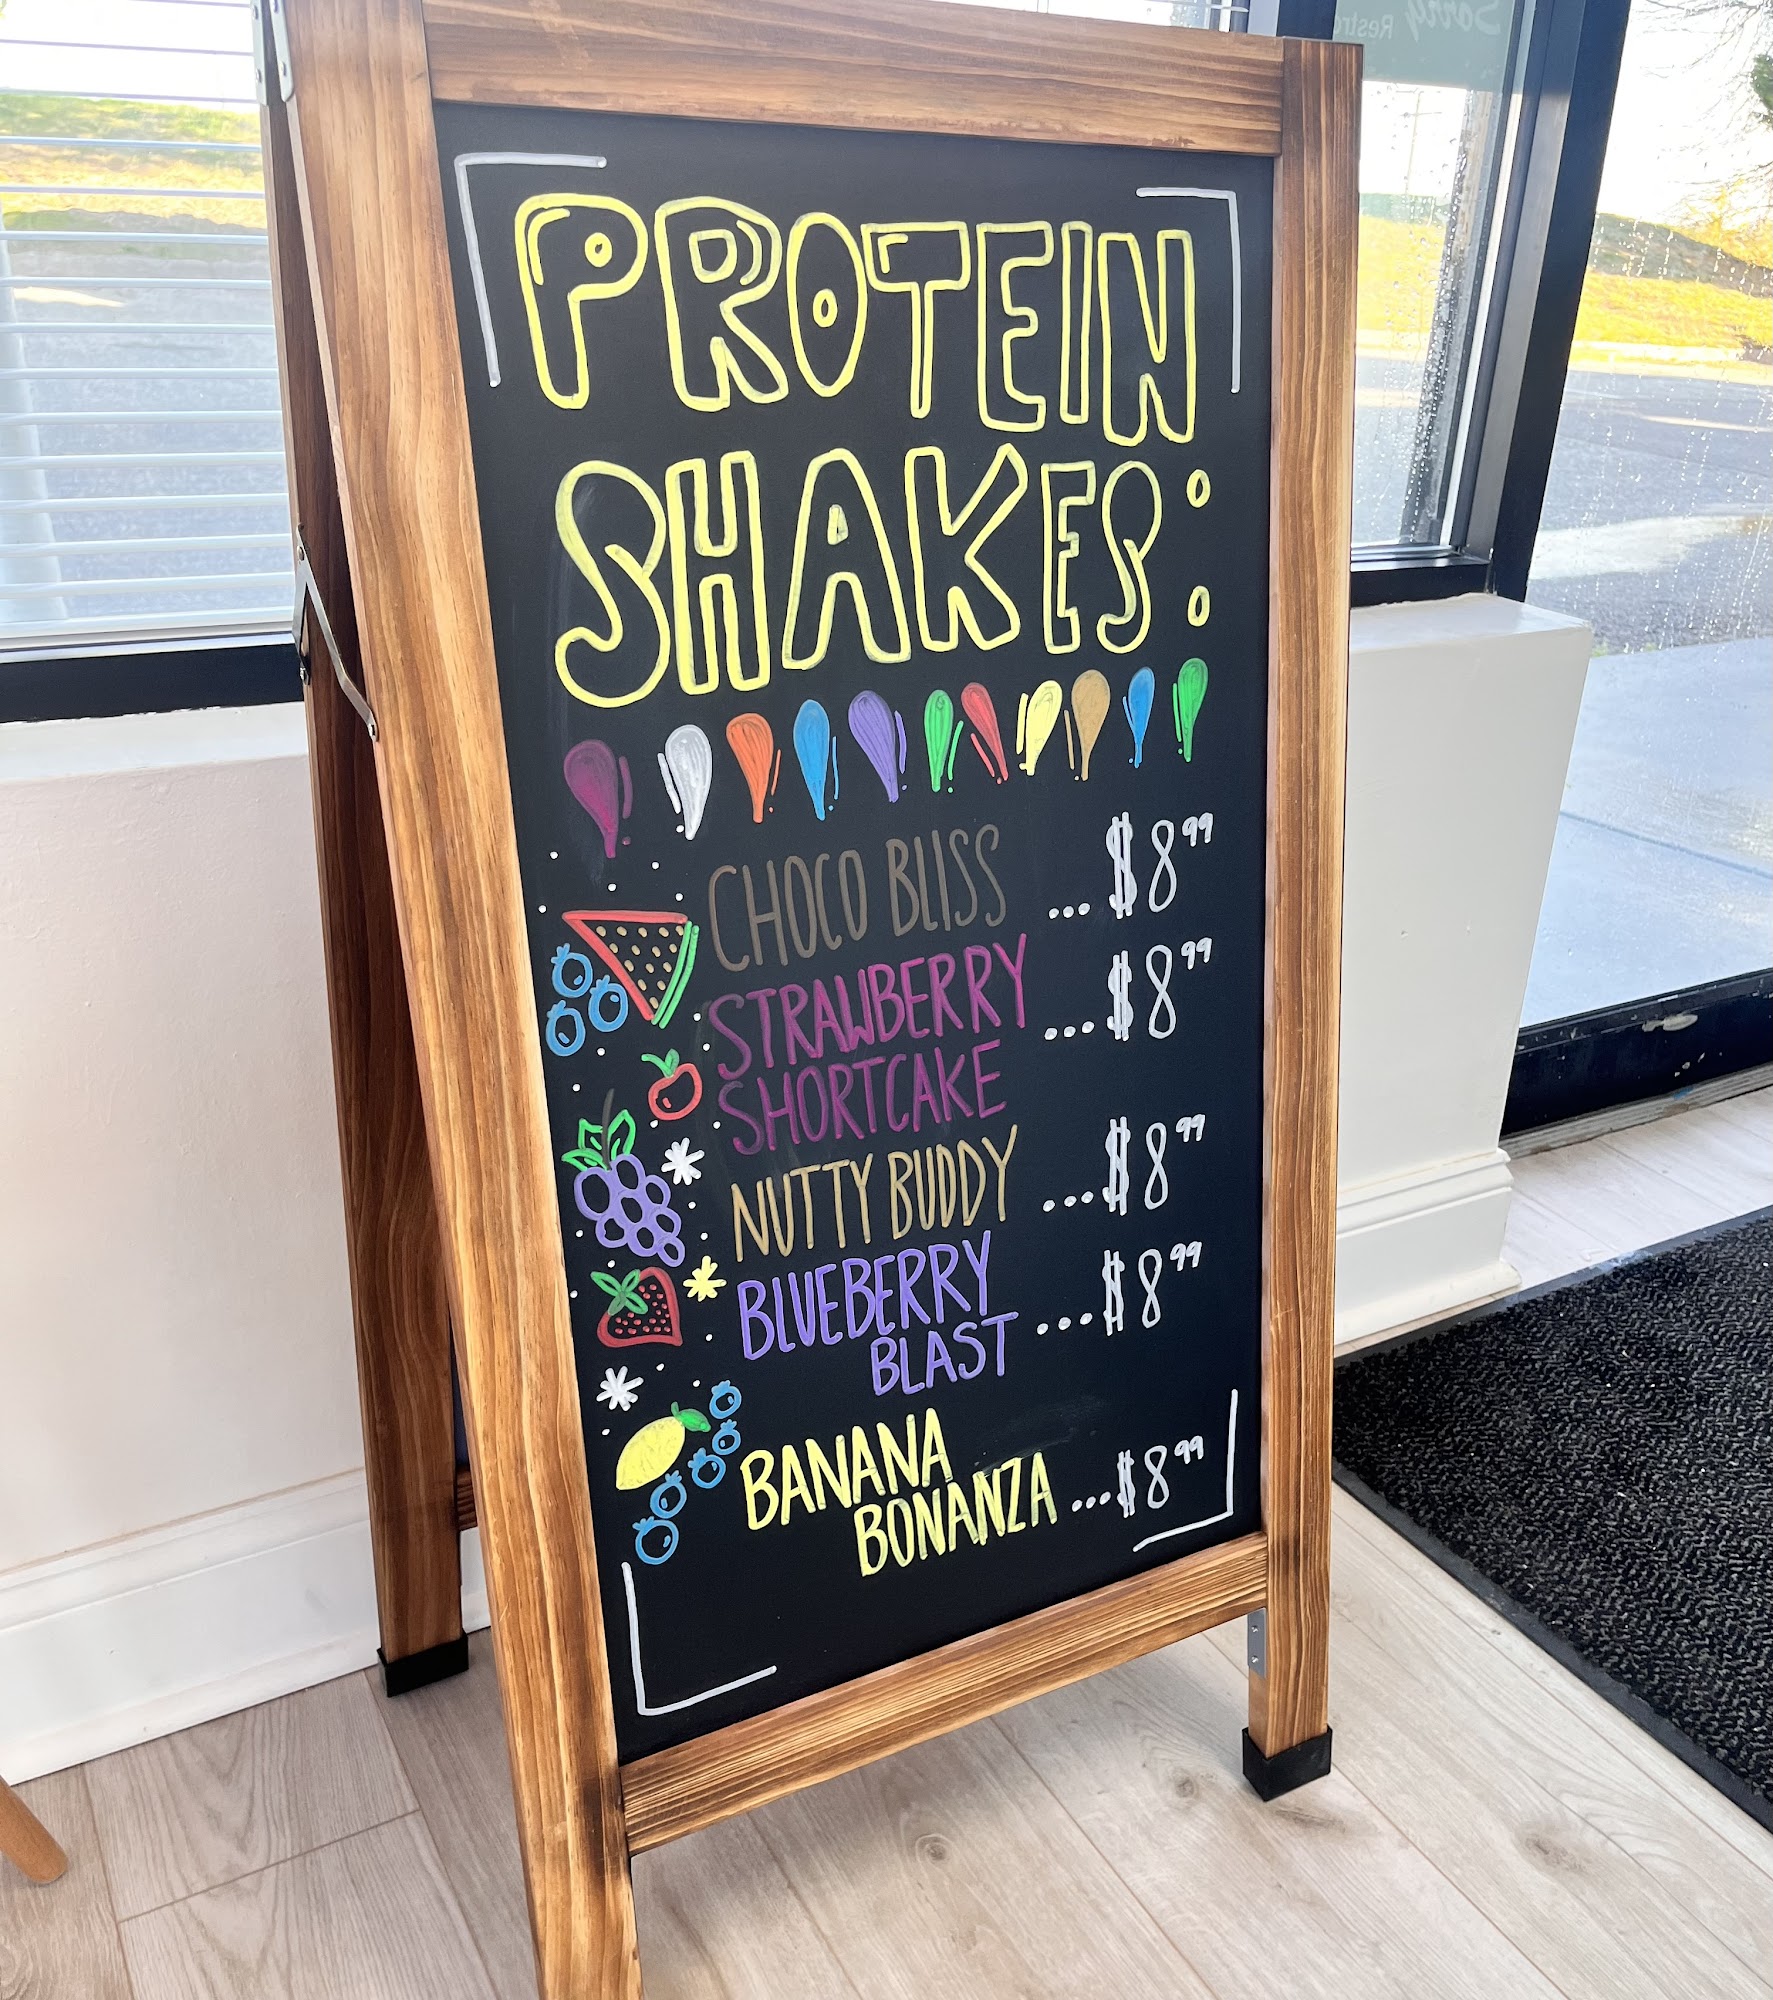 PROTEIN
SHAKES:
CHOCO BLISS ...$8.99
STRAWBERRY ...$8.99
SHORTCAKE
NUTTY BUDDY ...$8.99
BLUEBERRY ...$8.99
BLAST
BANANA
BONANZA ...$8.99
Sorry Restro